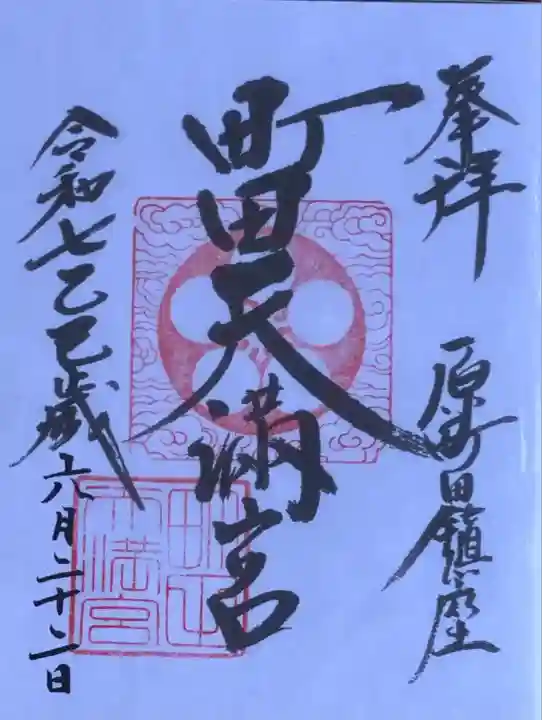 奉拝
原町田鎮座
町田天満宮
令和七乙巳歳六月二十二日
町田天満宮